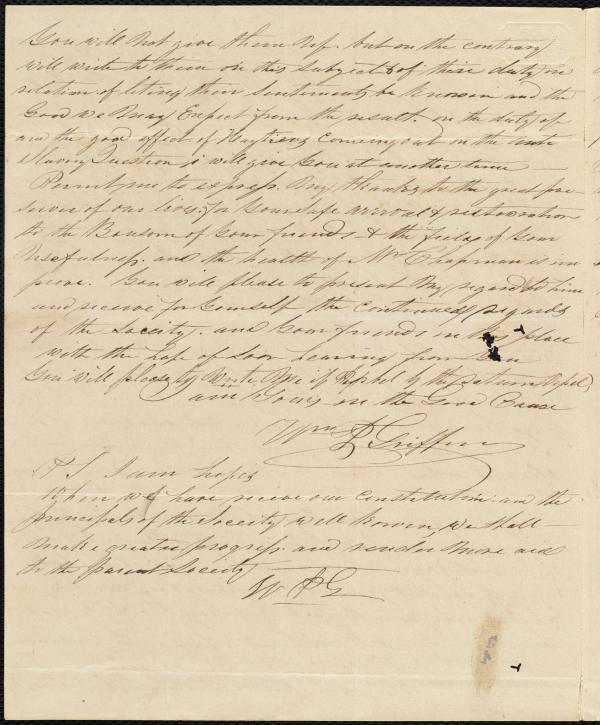 You will not give them up. but on the contrary
will write to them on this subject & of their duty in
relation of leting their sentiments be known and the
Good we may Expect from the result. on the duty of
and the good effect of Haytians coming out on the
Slavery Question i will give You at another time —
Permit me to express my thanks to the great pre-
server of our lives, for Your safe arrival & restoration
to the Bousom of Your friends & the field of Your
Usefulness. and the health of Mr Chapman is im
prove. You will please to present my regard to him
and receive for Yourself the continued regards
of the Society. and Your friends in this place
with the hope of soon hearing from You
You will please to write me if by the return
am Yours in the Good Cause
Wm P Griffin
P S I am hopes
When we have receive our Constitution. and the
principals of the Society well known, we shall
make greater progress. and render more aid
to the Parent Society
W P G